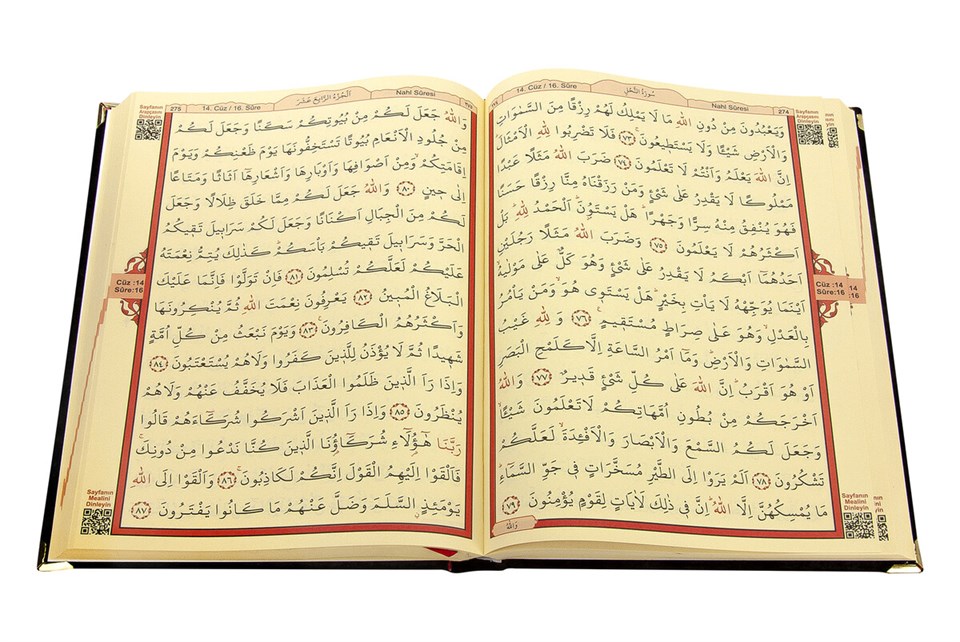 274
Nahl Sûresi
سُورَةُ النَّحْلِ
14. Cüz / 16. Sûre
وَيَعْبُدُونَ مِنْ دُونِ اللّٰهِ مَا لَا يَمْلِكُ لَهُمْ رِزْقًا مِنَ السَّمٰوَاتِ
وَالْاَرْضِ شَيْـًٔا وَلَا يَسْتَطٖيعُونَ ﴿٧٣﴾ فَلَا تَضْرِبُوا لِلّٰهِ الْاَمْثَالَ
اِنَّ اللّٰهَ يَعْلَمُ وَاَنْتُمْ لَا تَعْلَمُونَ ﴿٧٤﴾ ضَرَبَ اللّٰهُ مَثَلًا عَبْدًا
مَمْلُوكًا لَا يَقْدِرُ عَلٰى شَىْءٍ وَمَنْ رَزَقْنَاهُ مِنَّا رِزْقًا حَسَنًا
فَهُوَ يُنْفِقُ مِنْهُ سِرًّا وَجَهْرًا هَلْ يَسْتَوُۧنَ اَلْحَمْدُ لِلّٰهِ بَلْ
اَكْثَرُهُمْ لَا يَعْلَمُونَ ﴿٧٥﴾ وَضَرَبَ اللّٰهُ مَثَلًا رَجُلَيْنِ
اَحَدُهُمَٓا اَبْكَمُ لَا يَقْدِرُ عَلٰى شَىْءٍ وَهُوَ كَلٌّ عَلٰى مَوْلٰيهُ
اَيْنَمَا يُوَجِّهْهُ لَا يَاْتِ بِخَيْرٍ هَلْ يَسْتَوٖى هُوَ وَمَنْ يَاْمُرُ
بِالْعَدْلِ وَهُوَ عَلٰى صِرَاطٍ مُسْتَقٖيمٍ ﴿٧٦﴾ وَلِلّٰهِ غَيْبُ
السَّمٰوَاتِ وَالْاَرْضِ وَمَٓا اَمْرُ السَّاعَةِ اِلَّا كَلَمْحِ الْبَصَرِ
اَوْ هُوَ اَقْرَبُ اِنَّ اللّٰهَ عَلٰى كُلِّ شَىْءٍ قَدٖيرٌ ﴿٧٧﴾ وَاللّٰهُ
اَخْرَجَكُمْ مِنْ بُطُونِ اُمَّهَاتِكُمْ لَا تَعْلَمُونَ شَيْـًٔا
وَجَعَلَ لَكُمُ السَّمْعَ وَالْاَبْصَارَ وَالْاَفْـِٔدَةَ لَعَلَّكُمْ
تَشْكُرُونَ ﴿٧٨﴾ اَلَمْ يَرَوْا اِلَى الطَّيْرِ مُسَخَّرَاتٍ فٖى جَوِّ السَّمَٓاءِ
مَا يُمْسِكُهُنَّ اِلَّا اللّٰهُ اِنَّ فٖى ذٰلِكَ لَاٰيَاتٍ لِقَوْمٍ يُؤْمِنُونَ ﴿٧٩﴾
وَاللّٰهُ
Sayfanın
Arapçasını
Dinleyin
Cüz :14
Sûre:16
14
:16
Sayfanın
Mealini
Dinleyin
Nahl Sûresi
اَلْجُزْءُ الرَّابِعَ عَشَرَ
14. Cüz / 16. Sûre
275
وَاللّٰهُ جَعَلَ لَكُمْ مِنْ بُيُوتِكُمْ سَكَنًا وَجَعَلَ لَكُمْ
مِنْ جُلُودِ الْاَنْعَامِ بُيُوتًا تَسْتَخِفُّونَهَا يَوْمَ ظَعْنِكُمْ وَيَوْمَ
اِقَامَتِكُمْ وَمِنْ اَصْوَافِهَا وَاَوْبَارِهَا وَاَشْعَارِهَٓا اَثَاثًا وَمَتَاعًا
اِلٰى حٖينٍ ﴿٨٠﴾ وَاللّٰهُ جَعَلَ لَكُمْ مِمَّا خَلَقَ ظِلَالًا وَجَعَلَ
لَكُمْ مِنَ الْجِبَالِ اَكْنَانًا وَجَعَلَ لَكُمْ سَرَابٖيلَ تَقٖيكُمُ
الْحَرَّ وَسَرَابٖيلَ تَقٖيكُمْ بَاْسَكُمْ كَذٰلِكَ يُتِمُّ نِعْمَتَهُ
عَلَيْكُمْ لَعَلَّكُمْ تُسْلِمُونَ ﴿٨١﴾ فَاِنْ تَوَلَّوْا فَاِنَّمَا عَلَيْكَ
الْبَلَاغُ الْمُبٖينُ ﴿٨٢﴾ يَعْرِفُونَ نِعْمَتَ اللّٰهِ ثُمَّ يُنْكِرُونَهَا
وَاَكْثَرُهُمُ الْكَافِرُونَ ﴿٨٣﴾ وَيَوْمَ نَبْعَثُ مِنْ كُلِّ اُمَّةٍ
شَهٖيدًا ثُمَّ لَا يُؤْذَنُ لِلَّذٖينَ كَفَرُوا وَلَا هُمْ يُسْتَعْتَبُونَ ﴿٨٤﴾
وَاِذَا رَاَ الَّذٖينَ ظَلَمُوا الْعَذَابَ فَلَا يُخَفَّفُ عَنْهُمْ وَلَا هُمْ
يُنْظَرُونَ ﴿٨٥﴾ وَاِذَا رَاَ الَّذٖينَ اَشْرَكُوا شُرَكَٓاءَهُمْ قَالُوا
رَبَّنَا هٰٓؤُ۬لَٓاءِ شُرَكَٓاؤُ۬نَا الَّذٖينَ كُنَّا نَدْعُوا مِنْ دُونِكَ
فَاَلْقَوْا اِلَيْهِمُ الْقَوْلَ اِنَّكُمْ لَكَاذِبُونَ ﴿٨٦﴾ وَاَلْقَوْا اِلَى اللّٰهِ
يَوْمَئِذٍ السَّلَمَ وَضَلَّ عَنْهُمْ مَا كَانُوا يَفْتَرُونَ ﴿٨٧﴾
Sayfanın
Arapçasını
Dinleyin
Cüz :14
Sûre:16
Sayfanın
Mealini
Dinleyin